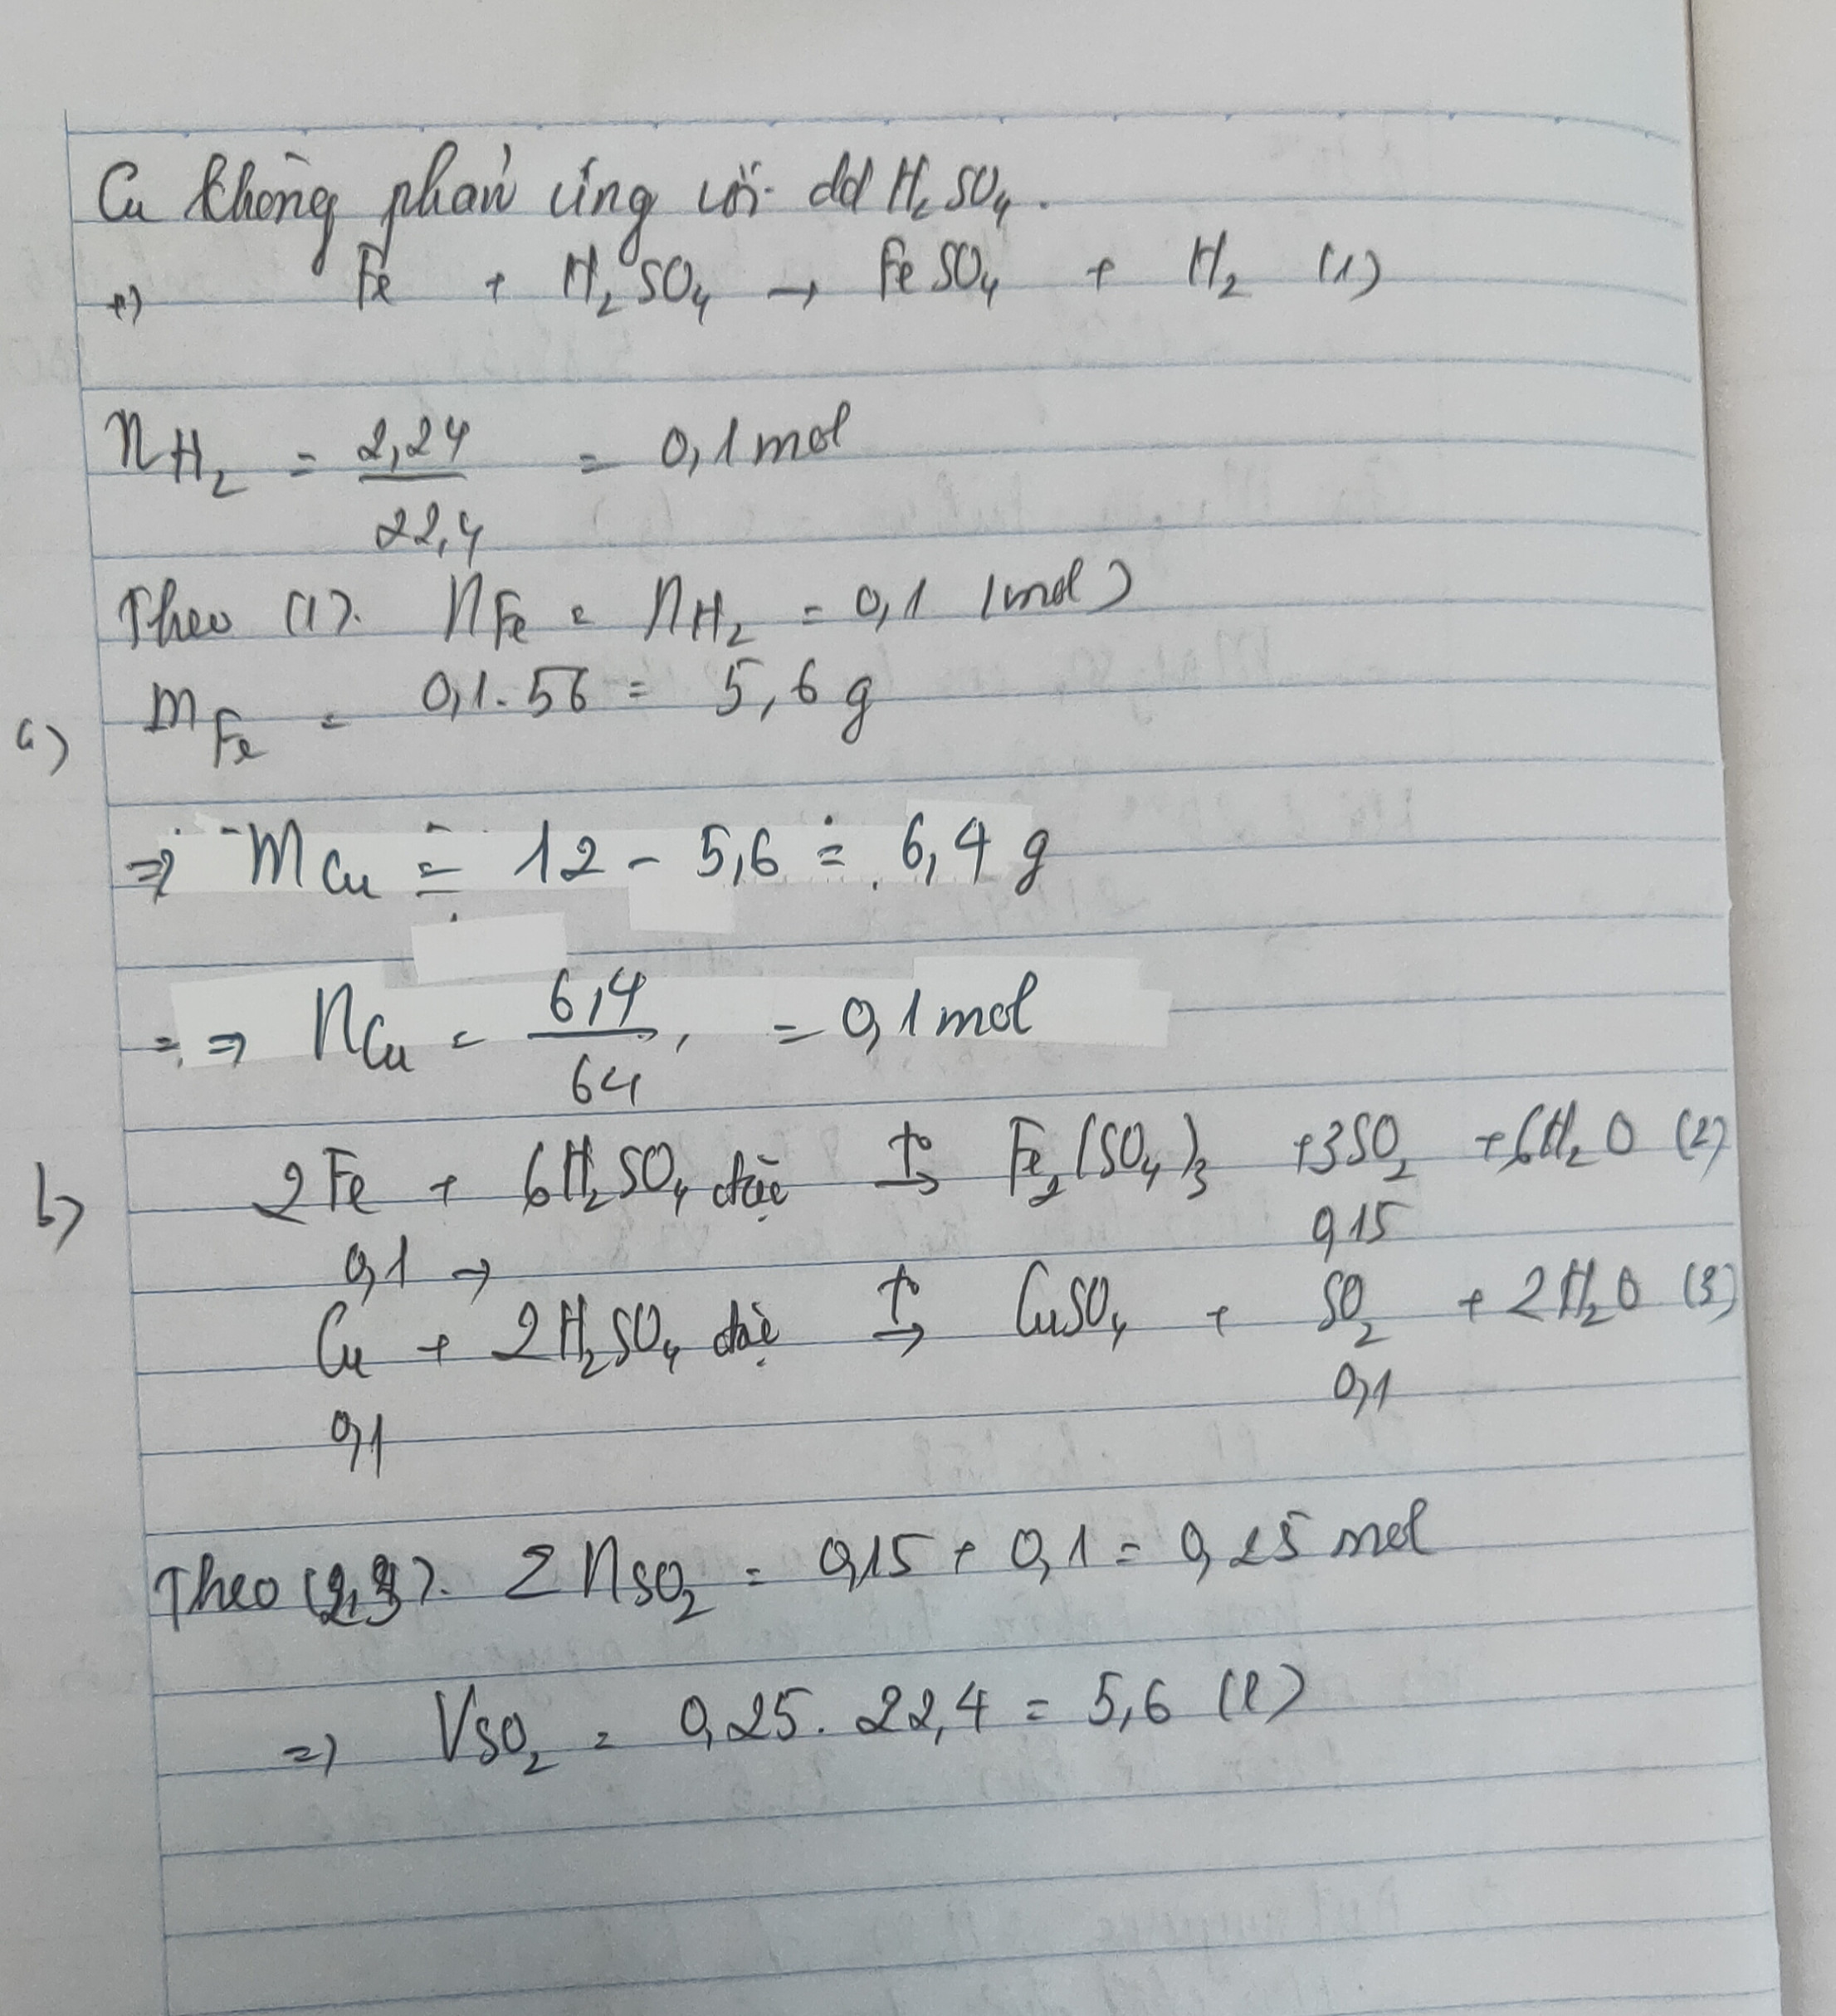 Cu không phản ứng với dd H₂SO₄.
=> Fe + H₂SO₄ → FeSO₄ + H₂ (1)
nH₂ = 2,24/22,4 = 0,1 mol
Theo (1). nFe = nH₂ = 0,1 (mol)
a) mFe = 0,1.56 = 5,6 g
=> mCu = 12 - 5,6 = 6,4 g
=> nCu = 6,4/64 = 0,1 mol
b) 2Fe + 6H₂SO₄ đặc t° → Fe₂(SO₄)₃ + 3SO₂ + 6H₂O (2)
0,1 → 0,15
Cu + 2H₂SO₄ đặc t° → CuSO₄ + SO₂ + 2H₂O (3)
0,1 0,1
Theo (2,3). ΣnSO₂ = 0,15 + 0,1 = 0,25 mol
=> VSO₂ = 0,25. 22,4 = 5,6 (l)